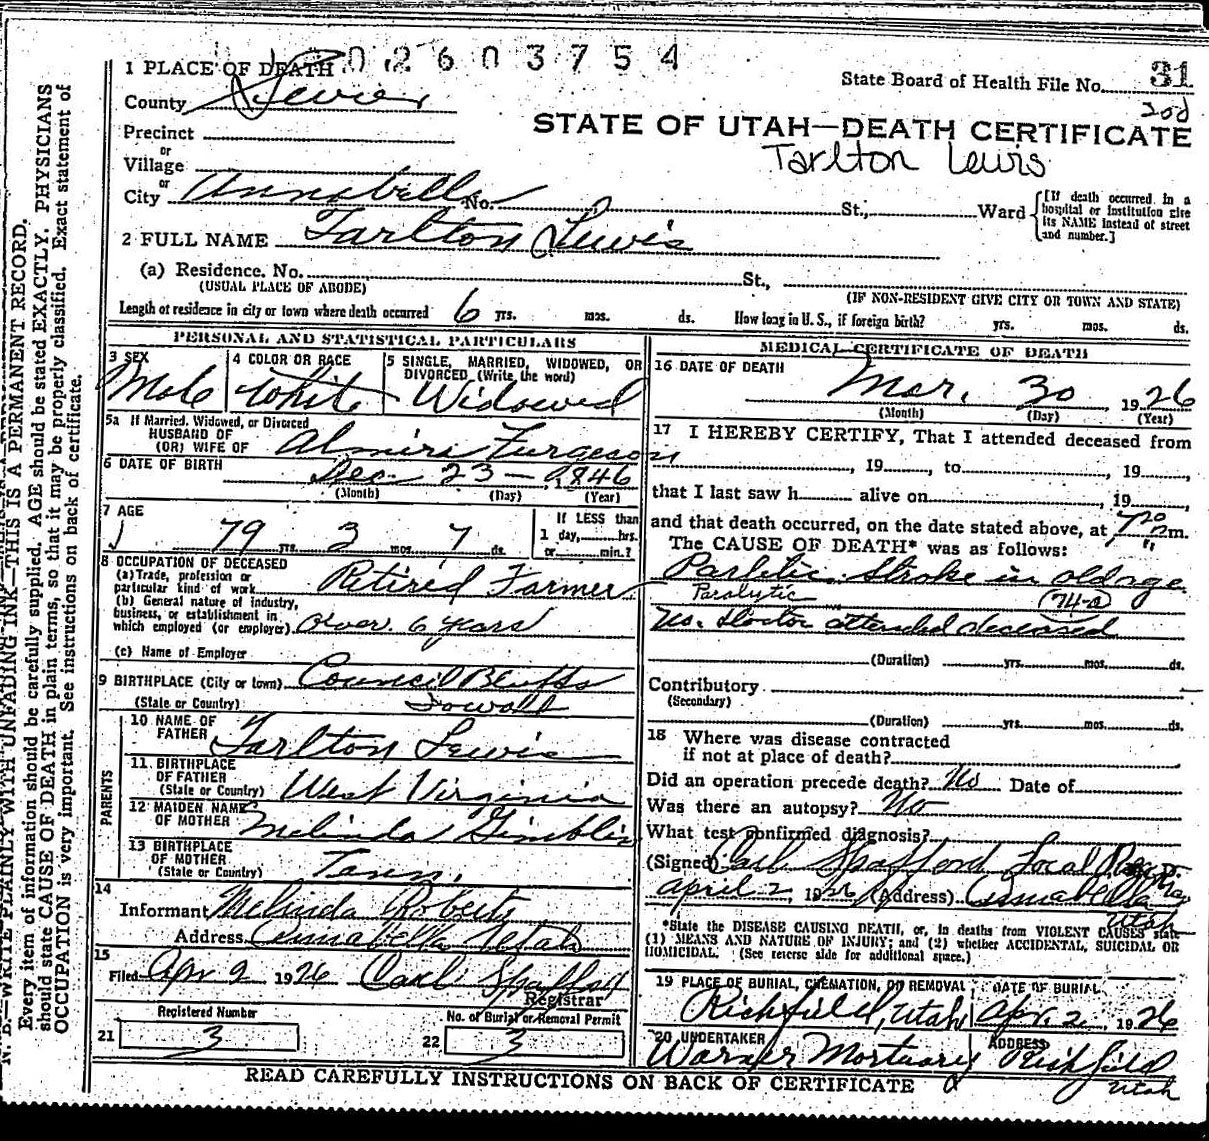 02603754
1 PLACE OF DEATH
State Board of Health File No. 31
County Sevier
20d
Precinct
STATE OF UTAH—DEATH CERTIFICATE
or
Tarlton Lewis
Village
or
City Annabella No. St., Ward [If death occurred in a hospital or institution give its NAME instead of street and number.]
2 FULL NAME Tarlton Lewis
(a) Residence. No. St.,
(USUAL PLACE OF ABODE) (IF NON-RESIDENT GIVE CITY OR TOWN AND STATE)
Length of residence in city or town where death occurred 6 yrs. mos. ds. How long in U. S., if foreign birth? yrs. mos. ds.
PERSONAL AND STATISTICAL PARTICULARS
3 SEX 4 COLOR OR RACE 5 SINGLE, MARRIED, WIDOWED, OR DIVORCED (Write the word)
Male White Widowed
5a If Married, Widowed, or Divorced
HUSBAND OF
(OR) WIFE OF Almira Furgeson
6 DATE OF BIRTH Dec. 23 — 1846
(Month) (Day) (Year)
7 AGE If LESS than
79 yrs. 3 mos. 7 ds. 1 day, hrs.
or min.?
8 OCCUPATION OF DECEASED
(a) Trade, profession or
particular kind of work Retired Farmer
(b) General nature of industry,
business, or establishment in
which employed (or employer) over 6 years
(c) Name of Employer
9 BIRTHPLACE (City or town) Council Bluffs
(State or Country)
PARENTS
10 NAME OF
FATHER Tarlton Lewis
11 BIRTHPLACE
OF FATHER
(State or Country) West Virginia
12 MAIDEN NAME
OF MOTHER Melinda Gimblin
13 BIRTHPLACE
OF MOTHER
(State or Country) Tenn.
14
Informant Melinda Roberts
Address Annabella Utah
15
Filed Apr 2 1926 Carl Spafford
Registrar
Registered Number No. of Burial or Removal Permit
21 3 22 3
MEDICAL CERTIFICATE OF DEATH
16 DATE OF DEATH
Mar. 30, 1926
(Month) (Day) (Year)
17 I HEREBY CERTIFY, That I attended deceased from
, 19 , to , 19
that I last saw h alive on , 19 ,
and that death occurred, on the date stated above, at 7 20 m.
The CAUSE OF DEATH* was as follows:
Parlitic Stroke in old age
Paralytic 74-a
No. Doctor attended deceased
(Duration) yrs. mos. ds.
Contributory
(Secondary)
(Duration) yrs. mos. ds.
18 Where was disease contracted
if not at place of death?
Did an operation precede death? No Date of
Was there an autopsy? No
What test confirmed diagnosis?
(Signed) Carl Spafford Local Reg
April 2, 1926 (Address) Annabella
Utah
*State the DISEASE CAUSING DEATH, or, in deaths from VIOLENT CAUSES state
(1) MEANS AND NATURE OF INJURY; and (2) whether ACCIDENTAL, SUICIDAL OR
HOMICIDAL. (See reverse side for additional space.)
19 PLACE OF BURIAL, CREMATION, OR REMOVAL DATE OF BURIAL
Richfield, Utah Apr. 2, 1926
20 UNDERTAKER ADDRESS
Warner Mortuary Richfield
Utah
READ CAREFULLY INSTRUCTIONS ON BACK OF CERTIFICATE
N. B.—WRITE PLAINLY WITH UNFADING INK—THIS IS A PERMANENT RECORD.
Every item of information should be carefully supplied. AGE should be stated EXACTLY. PHYSICIANS
should state CAUSE OF DEATH in plain terms, so that it may be properly classified. Exact statement of
OCCUPATION is very important. See instructions on back of certificate.